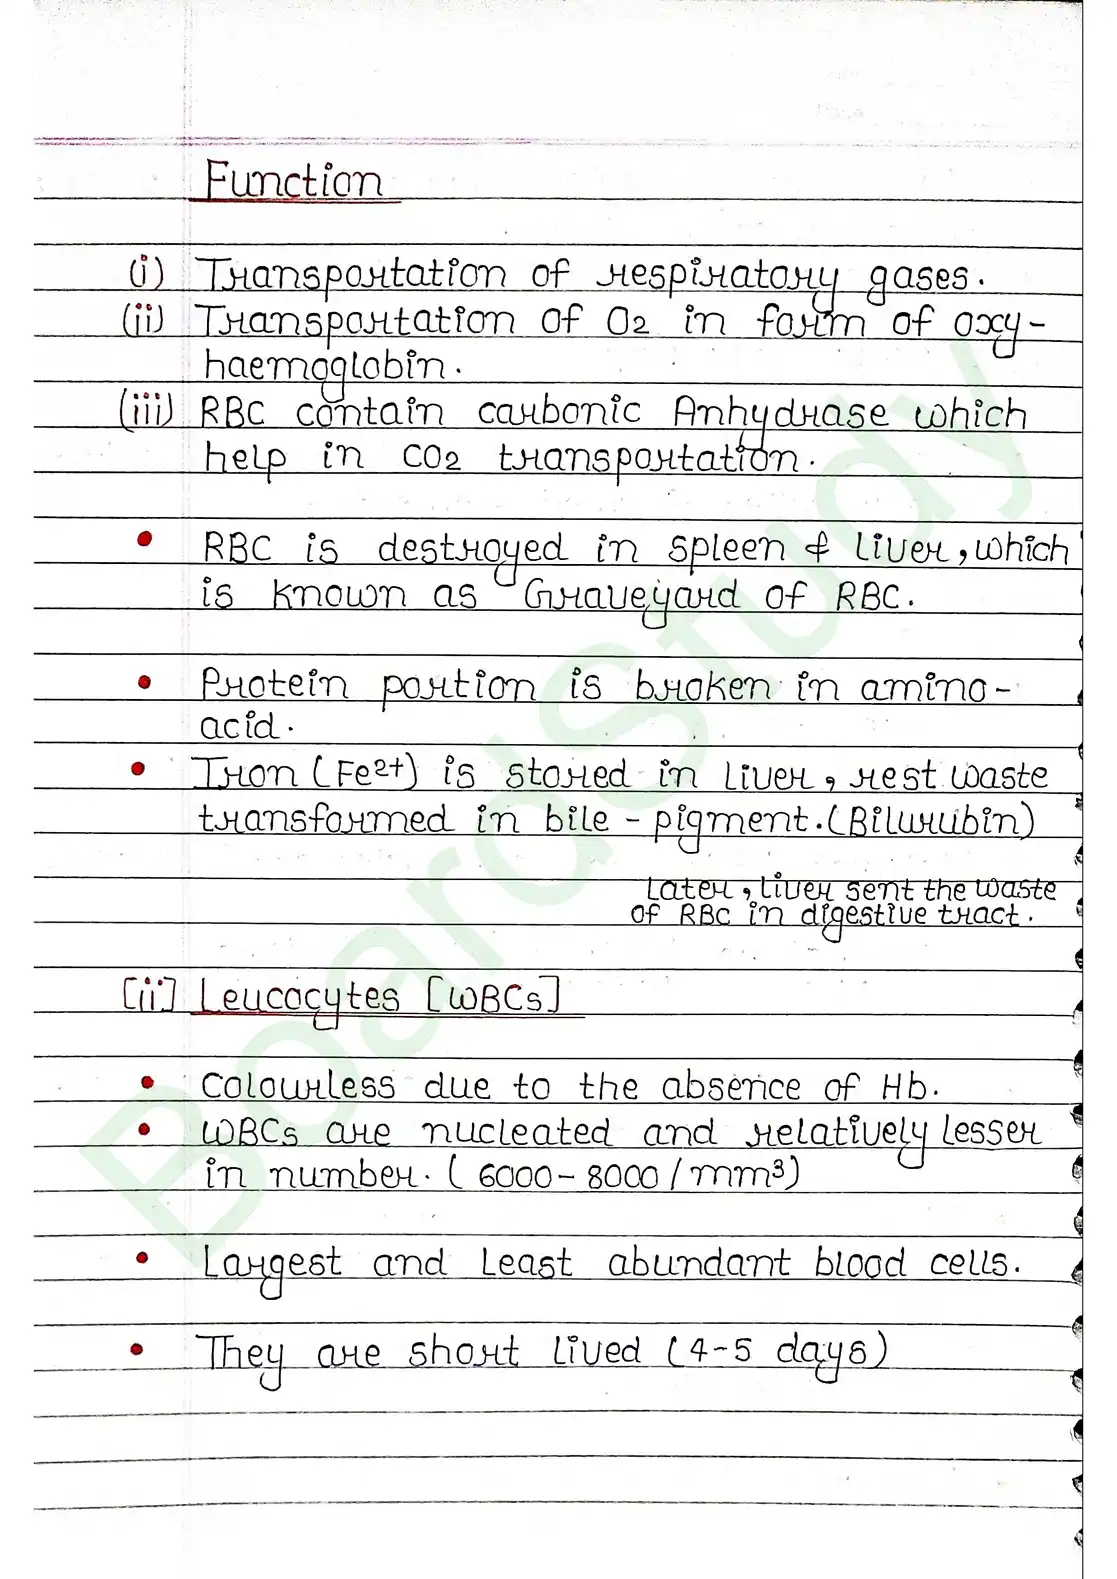 Function
(i) Transportation of respiratory gases.
(ii) Transportation of O2 in form of oxy-
haemoglobin.
(iii) RBC contain carbonic Anhydrase which
help in CO2 transportation.
• RBC is destroyed in spleen & liver, which
is known as Graveyard of RBC.
• Protein portion is broken in amino-
acid.
• Iron (Fe2+) is stored in liver, rest waste
transformed in bile - pigment. (Bilurubin)
Later, liver sent the waste
of RBC in digestive tract.
[ii] Leucocytes [WBCs]
• Colourless due to the absence of Hb.
• WBCs are nucleated and relatively lesser
in number. (6000-8000/mm³)
• Largest and Least abundant blood cells.
• They are short lived (4-5 days)
BoardStudy